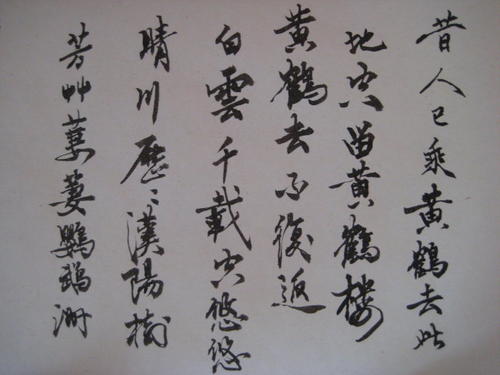 昔人已乘黄鶴去此
地空留黄鶴樓
黄鶴去不復返
白雲千載空悠悠
晴川歷〻漢陽樹
芳艸萋萋鸚鵡洲